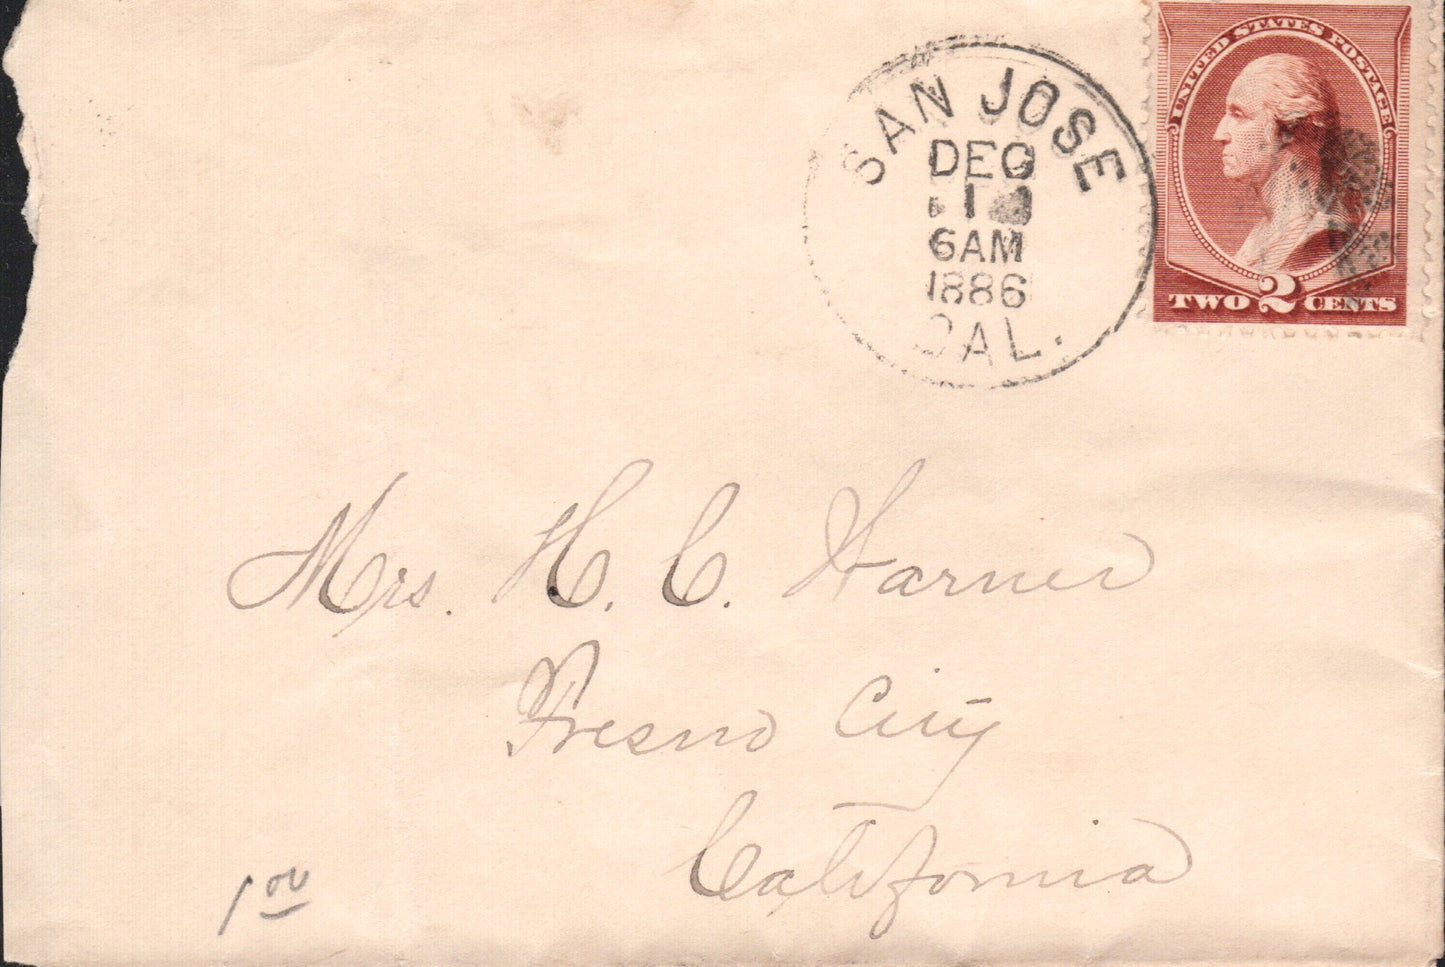 SAN JOSE
DEC
1
6AM
1886
CAL.
UNITED STATES POSTAGE
TWO 2 CENTS
Mrs. H. C. Warner
Fresno City
California
1 00